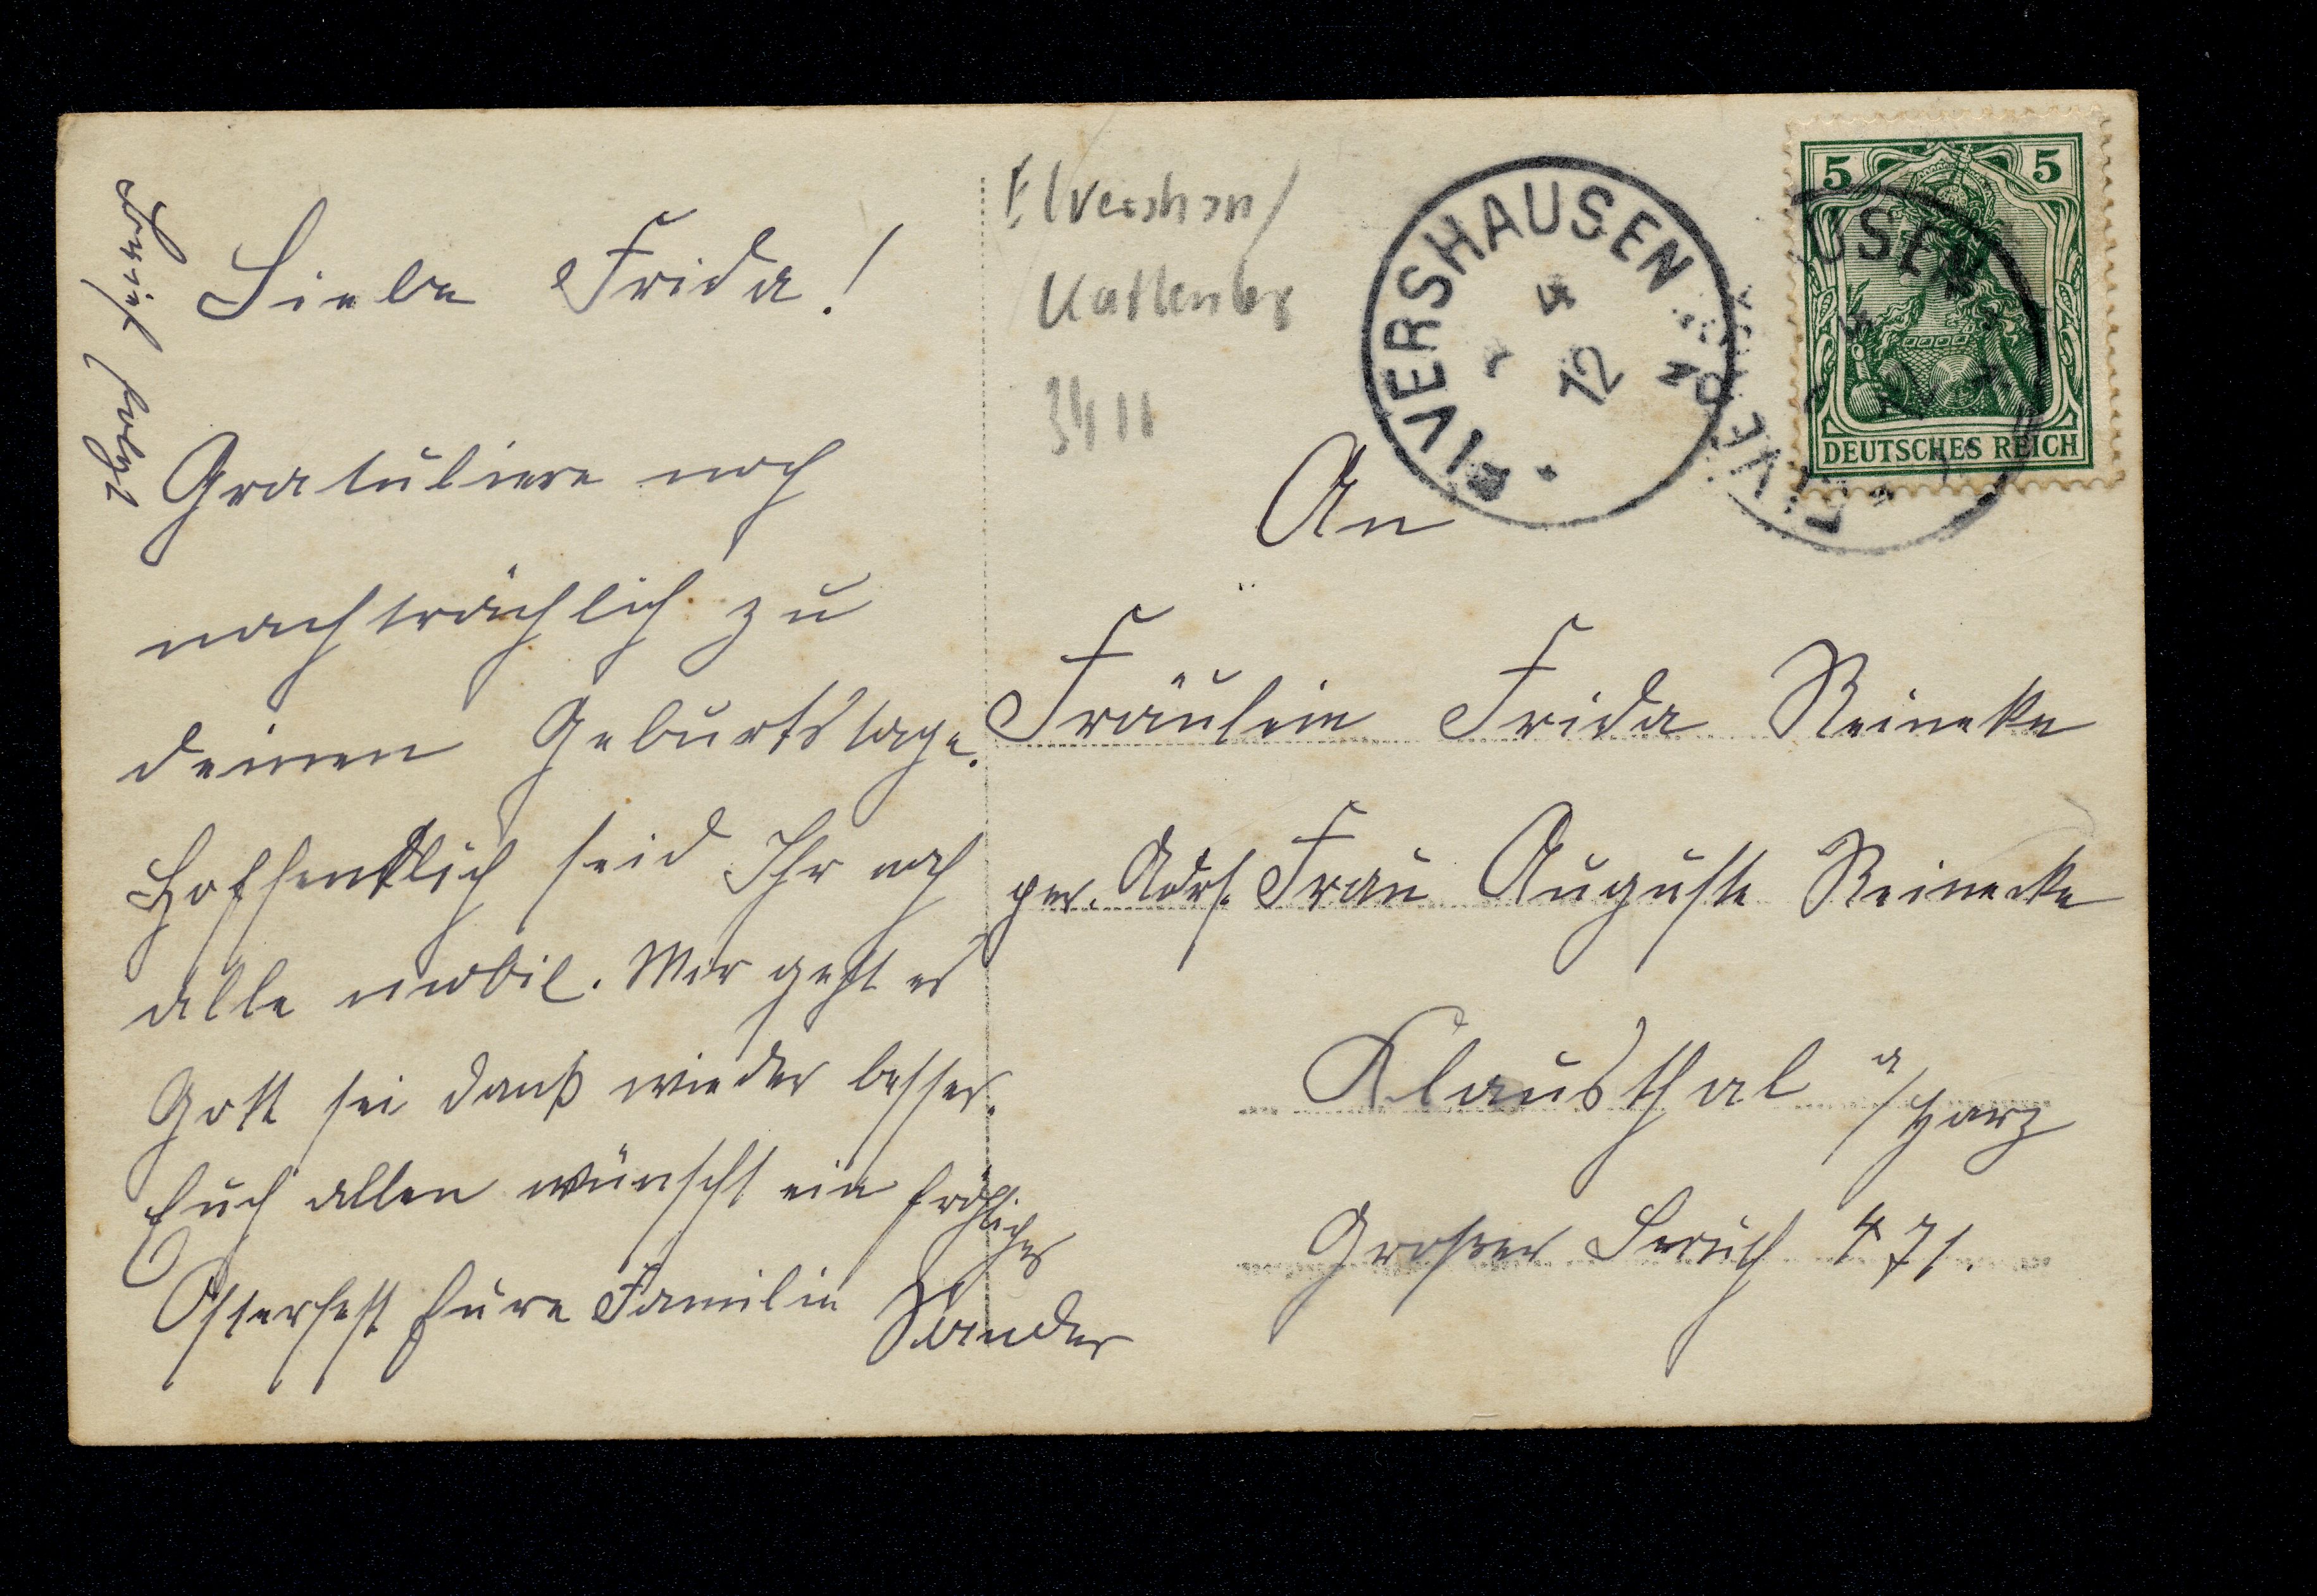 Liebe Frida!
Gratuliere noch
nachträchlich zu
deinen Geburtstage.
Hoffentlich seid Ihr noch
alle mobil. Mir geht es
Gott sei dank wieder besser.
Euch allen wünscht ein fröhliches
Osterfest Eure Familie Sander
Elvershsn/
Katlenbg
3411
ELVERSHAUSEN
4
12
USEN
ELVE
5 5
DEUTSCHES REICH
An
Fräulein Frida Reineke
per. Adrs. Frau Auguste Reinecke
Klausthal a/Harz
Großer Bruch 471.